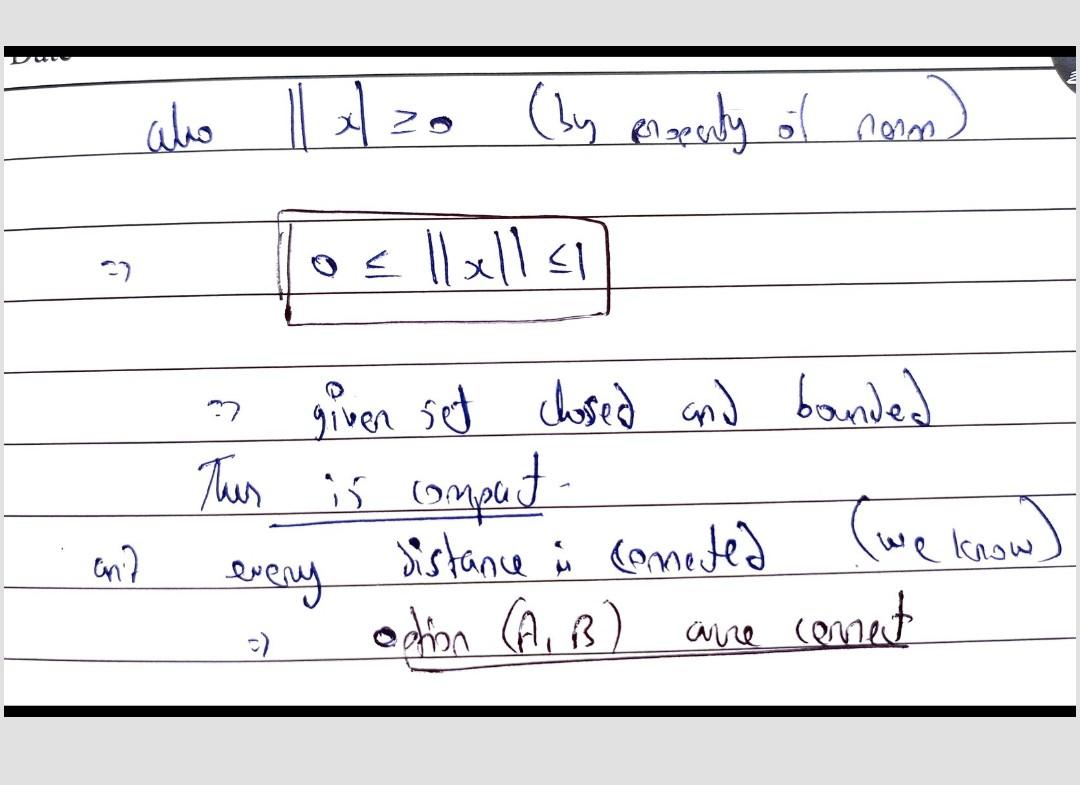 Date
also ||x| ≥ 0 (by property of norm)
=> 0 ≤ ||x|| ≤ 1
=> given set closed and bounded
Thus is compact.
and every distance is connected (we know)
=> option (A, B) are correct